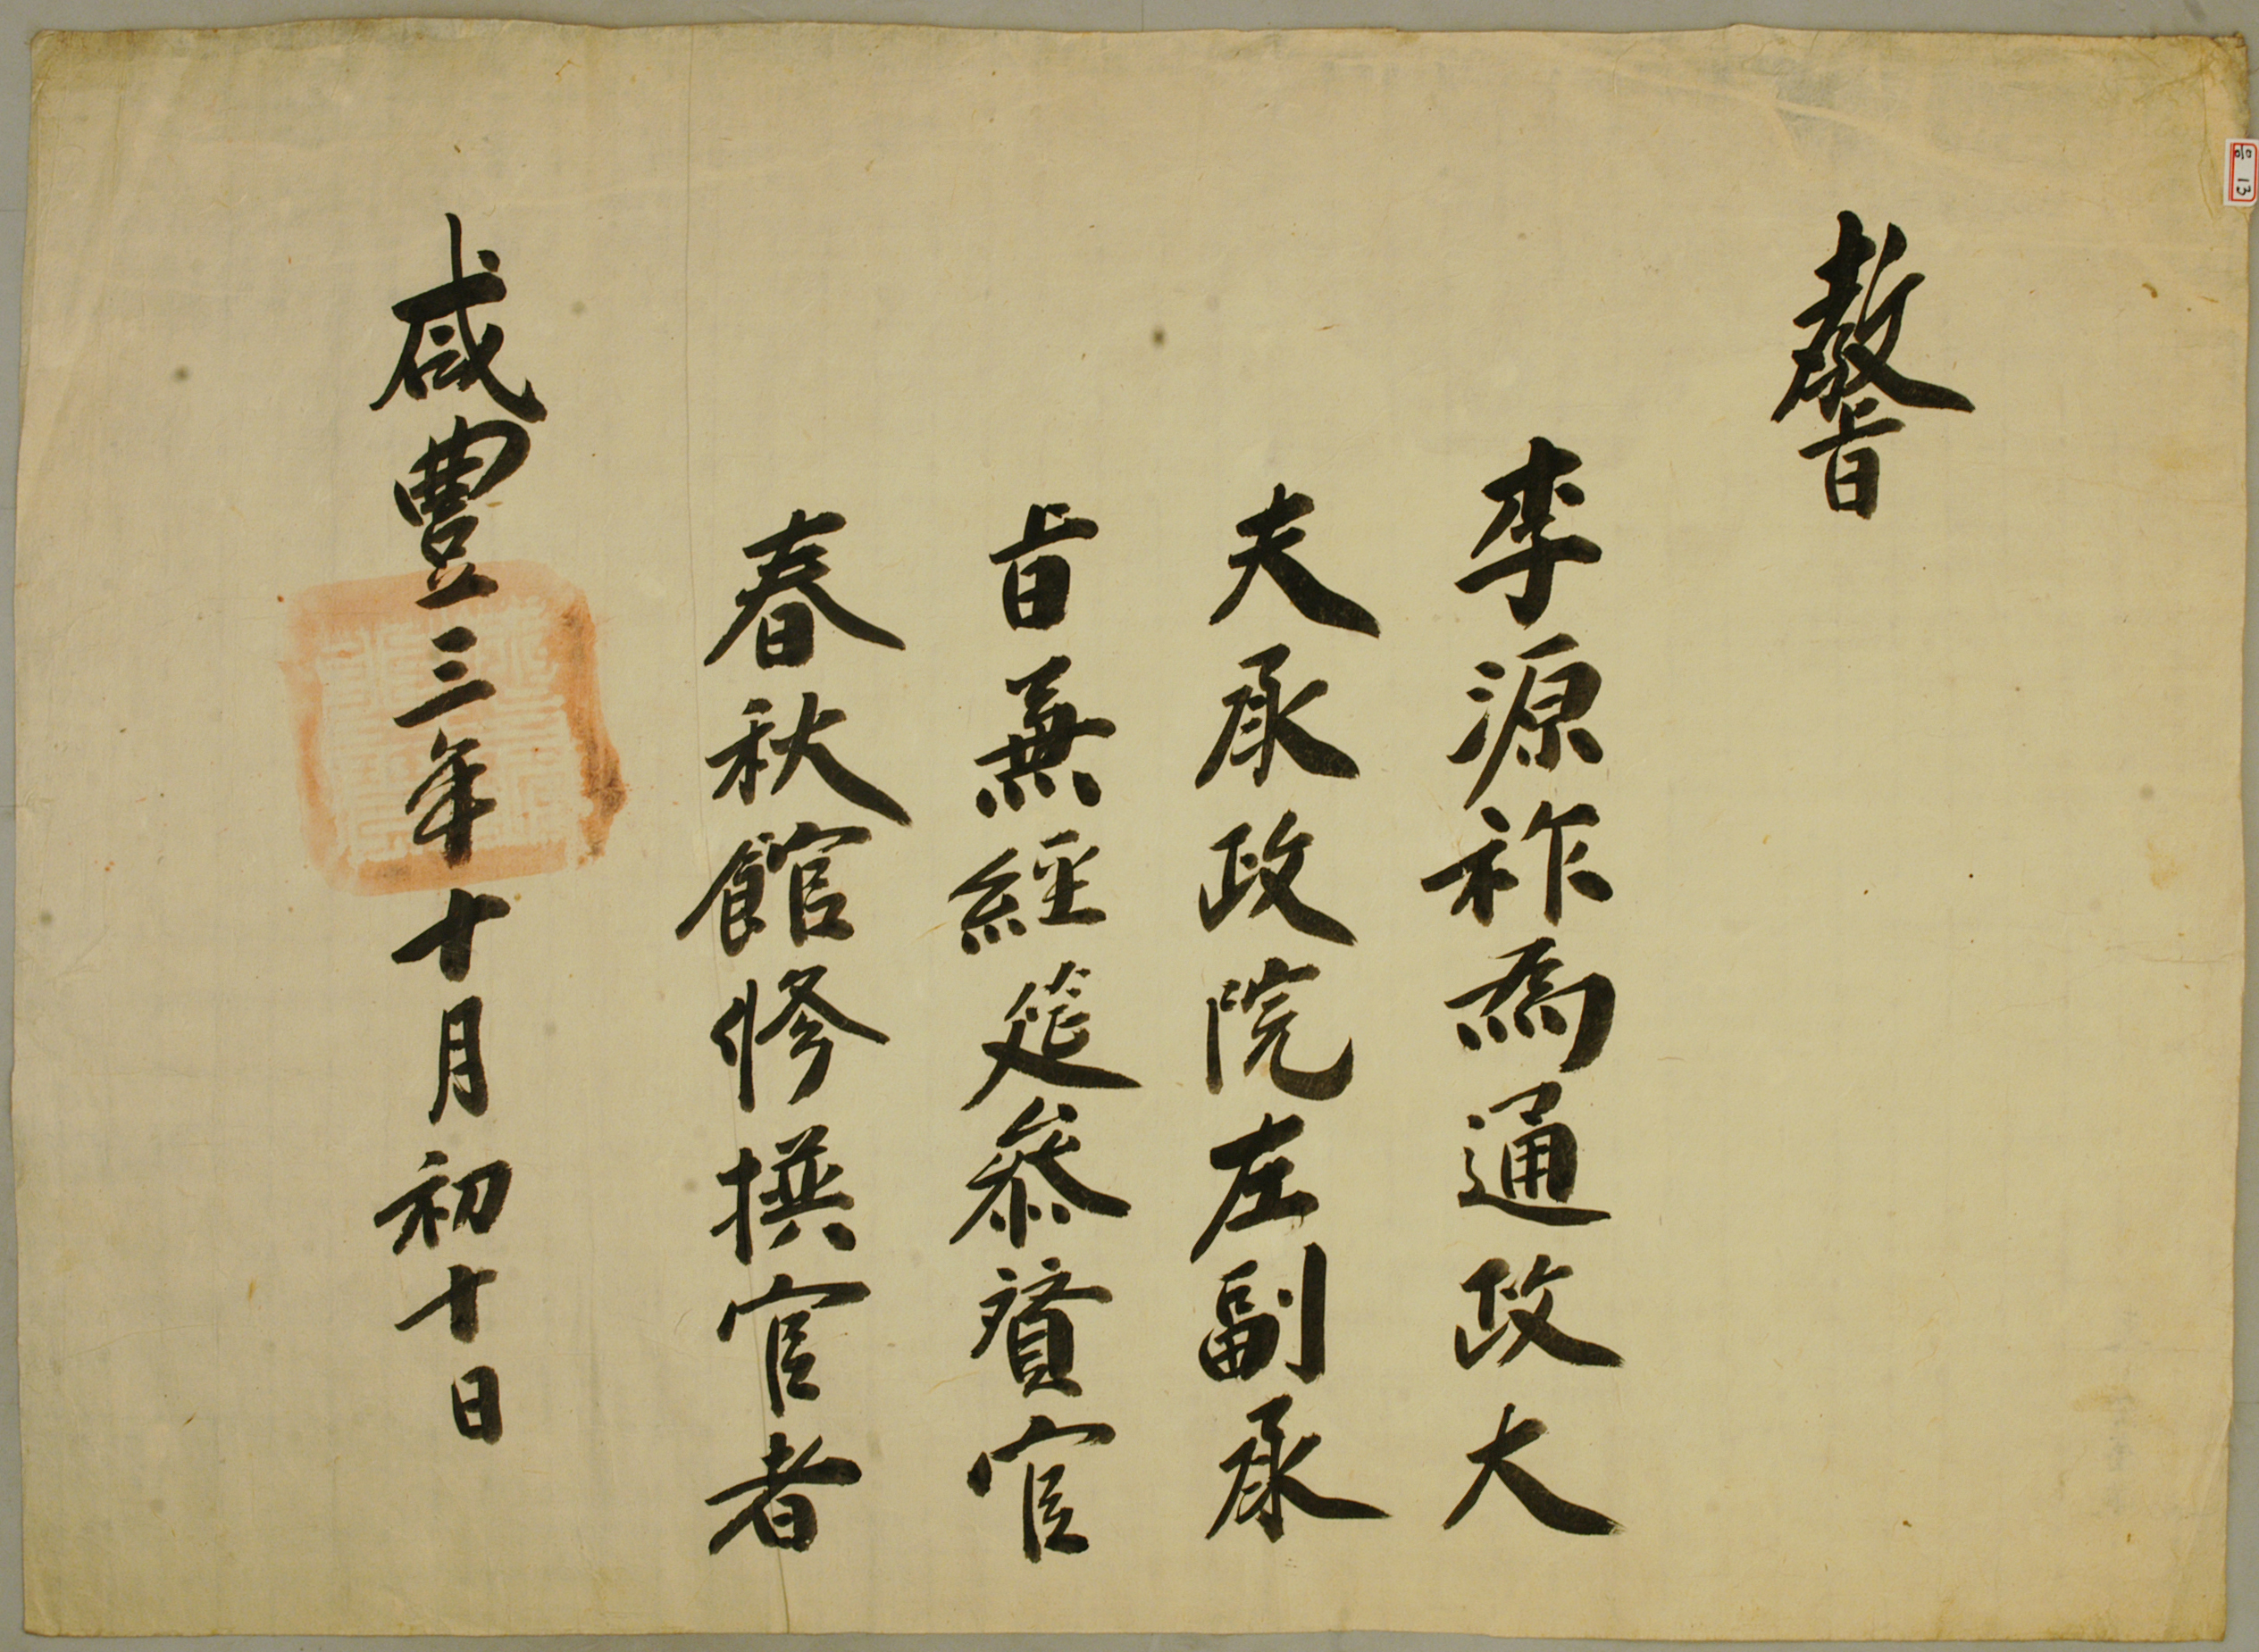 敎旨
李源祚爲通政大
夫承政院左副承
旨兼經筵參贊官
春秋館修撰官者
咸豊三年十月初十日
13